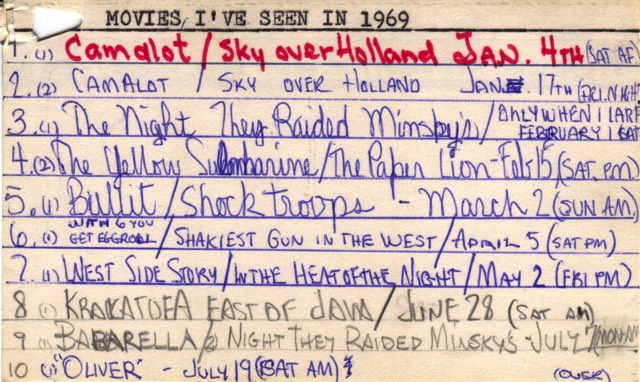 MOVIES, I'VE SEEN IN 1969
1. (1) Camalot / Sky over Holland JAN. 4TH (SAT AF
2. (2) CAMALOT / SKY OVER HOLLAND JAN. 17TH (FRI. NIGHT
3. (1) The Night They Raided Minsky's / ONLY WHEN I LARF FEBRUARY 1 SAT
4. (2) The Yellow Submarine / The Paper Lion - Feb 15 (SAT. PM)
5. (1) Bullit / Shock troops - March 2 (SUN AM)
6. (1) WITH 6 YOU GET EGGROLL / SHAKIEST GUN IN THE WEST / APRIL 5 (SAT PM)
7. (1) WEST SIDE STORY / IN THE HEAT OF THE NIGHT / MAY 2 (FRI PM)
8 (1) KRAKATOEA EAST OF JAVA / JUNE 28 (SAT AM)
9 (1) BABARELLA / (2) NIGHT THEY RAIDED MINSKY'S - JULY 7 (MON-AM
10 (1) "OLIVER" - JULY 19 (SAT AM) (OVER)